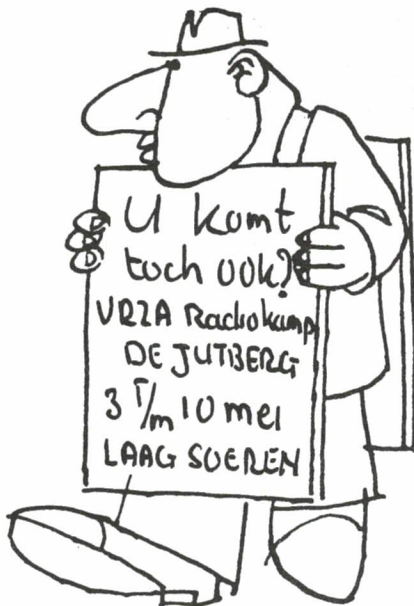 U komt
toch ook?
VRZA Radiokamp
DE JUTBERG
3 T/m 10 mei
LAAG SOEREN